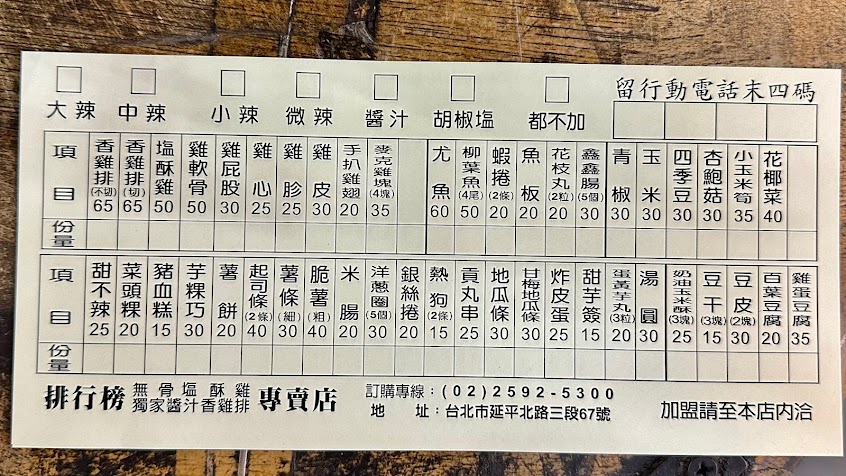 大辣 中辣 小辣 微辣 醬汁 胡椒塩 都不加
留行動電話末四碼
項目
香雞排(不切)65
香雞排(切)65
塩酥雞50
雞軟骨50
雞屁股30
雞心25
雞胗25
雞皮30
手扒雞翅20
麥克雞塊(4塊)35
尤魚60
柳葉魚(4尾)50
蝦捲(2條)20
魚板20
花枝丸(2粒)20
鑫鑫腸(5個)30
青椒30
玉米30
四季豆30
杏鮑菇30
小玉米筍35
花椰菜40
份量
項目
甜不辣25
菜頭粿20
豬血糕15
芋粿巧30
薯餅20
起司條(2條)40
薯條(細)30
脆薯(粗)40
米腸20
洋蔥圈(5個)30
銀絲捲20
熱狗(2條)15
貢丸串25
地瓜條30
甘梅地瓜條30
炸皮蛋25
甜芋簽15
蛋黃芋丸(3粒)20
湯圓30
奶油玉米酥(3塊)25
豆干(3塊)15
豆皮(2塊)30
百葉豆腐20
雞蛋豆腐35
份量
排行榜 無骨塩酥雞 獨家醬汁香雞排 專賣店
訂購專線：(02)2592-5300
地 址：台北市延平北路三段67號
加盟請至本店內洽